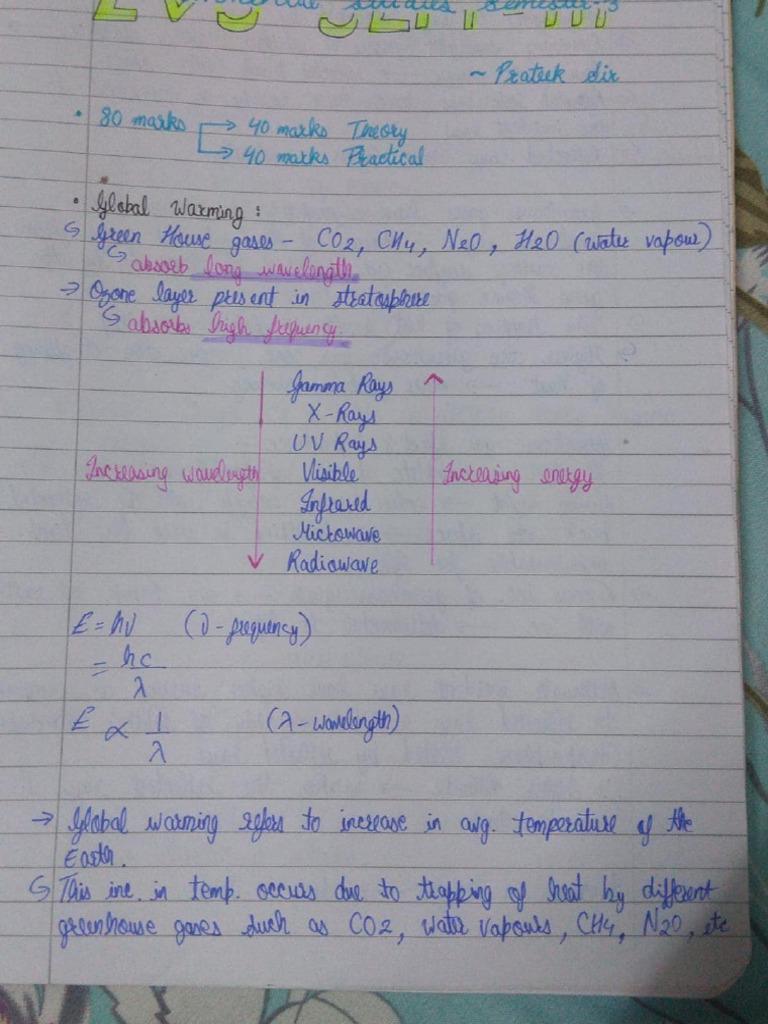 EVS SEM-III
studies semester-3
~ Prateek sir
• 80 marks → 40 marks Theory
→ 40 marks Practical
• Global Warming :
Green House gases - CO2, CH4, N2O, H2O (water vapour)
absorb long wavelength
→ Ozone layer present in stratosphere
absorbs high frequency.
Gamma Rays
X-Rays
UV Rays
Increasing wavelength Visible Increasing energy
Infrared
Microwave
Radiowave
E = hν (ν - frequency)
= hc/λ
E ∝ 1/λ (λ - wavelength)
→ Global warming refers to increase in avg. temperature of the
Earth.
This inc. in temp. occurs due to trapping of heat by different
greenhouse gases such as CO2, water vapours, CH4, N2O, etc